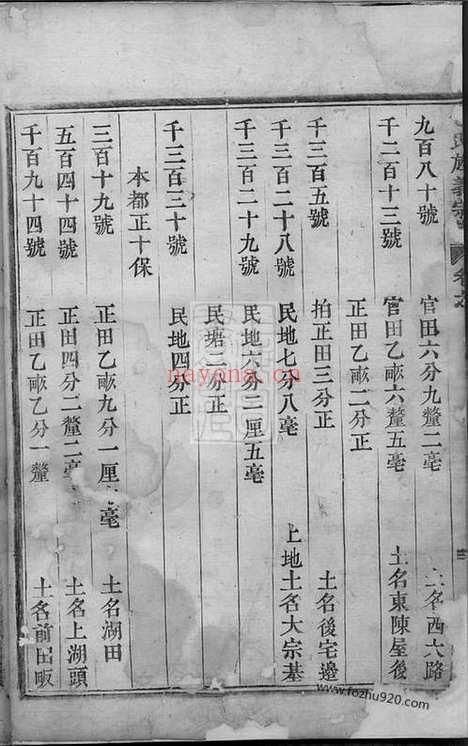 九百八十號 官田六分九釐二毫 土名西六路
千二百十三號 官田乙畝六釐五毫 土名東陳屋後
正田乙畝二分正
千二百五號 拍正田三分正 土名後宅邊
千三百二十八號 民地七分八毫 上地土名大宗墓
千三百二十九號 民地六分二厘五毫
民塘三分正
千三百三十號 民地四分正
本都正十保
三百十九號 正田乙畝九分一厘 毫 土名湖田
五百四十四號 正田四分二釐二毫 土名上湖頭
千百九十四號 正田乙畝乙分一釐 土名前田畈
nayona.cn
www.fozhu920.com